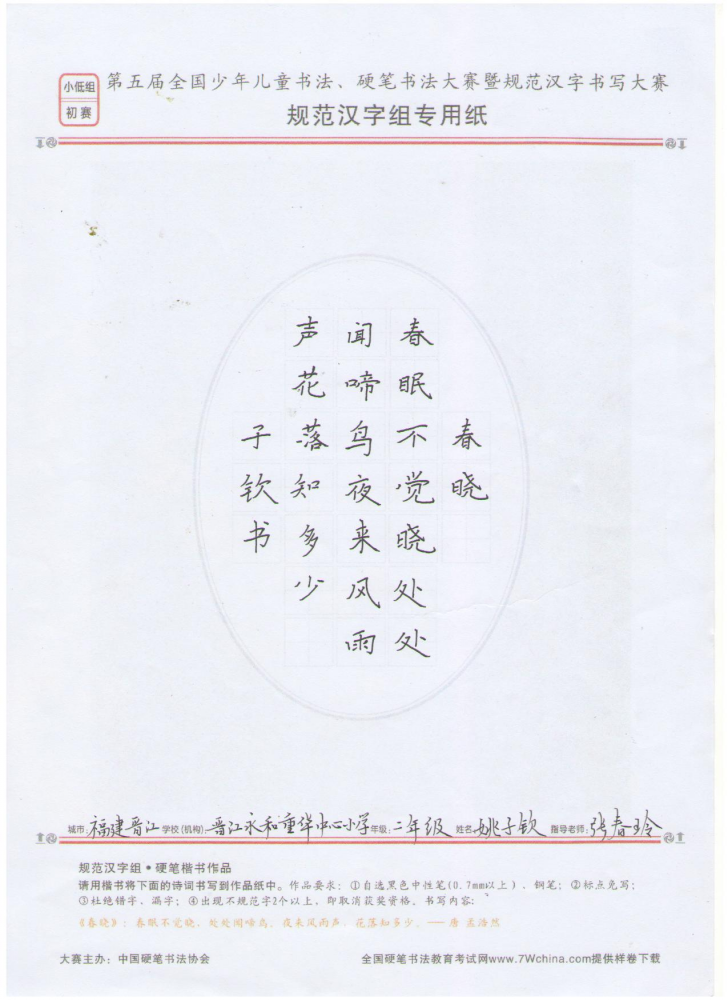 小低组
初赛
第五届全国少年儿童书法、硬笔书法大赛暨规范汉字书写大赛
规范汉字组专用纸
春晓
春眠不觉晓处处
闻啼鸟夜来风雨
声花落知多少
子钦书
城市:福建晋江 学校(机构):晋江永和重华中心小学 年级:二年级 姓名:姚子钦 指导老师:张春玲
规范汉字组·硬笔楷书作品
请用楷书将下面的诗词书写到作品纸中。作品要求:①自选黑色中性笔(0.7mm以上)、钢笔;②标点免写;
③杜绝错字、漏字;④出现不规范字2个以上,即取消获奖资格。书写内容:
《春晓》:春眠不觉晓,处处闻啼鸟。夜来风雨声,花落知多少。——唐 孟浩然
大赛主办:中国硬笔书法协会
全国硬笔书法教育考试网www.7Wchina.com提供样卷下载